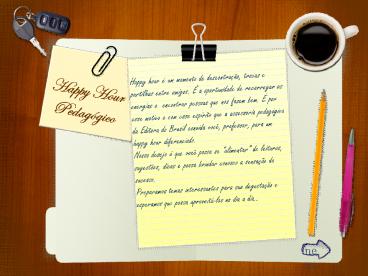 Happy Hour
Pedagógico
Happy hour é um momento de descontração, trocas e
partilhas entre amigos. É a oportunidade de recarregar as
energias e encontrar pessoas que nos fazem bem. É por
esse motivo e com esse espírito que a assessoria pedagógica
da Editora do Brasil convida você, professor, para um
happy hour diferenciado.
Nosso desejo é que você possa se "alimentar" de leituras,
sugestões, dicas e possa brindar conosco a sensação de
sucesso.
Preparamos temas interessantes para sua degustação e
esperamos que possa aproveitá-los no dia a dia.
ne